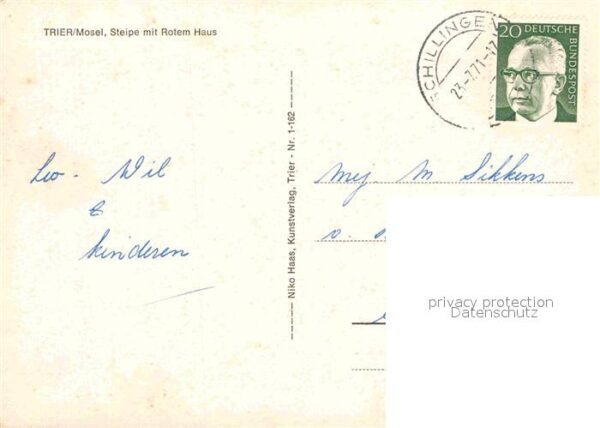 TRIER/Mosel, Steipe mit Rotem Haus
SCHILLINGEN
23.-7.71-17
20 DEUTSCHE BUNDESPOST
Leo - Wil
&
kinderen
Niko Haas, Kunstverlag, Trier - Nr. 1-162
Mej M Sikkens
v.
privacy protection
Datenschutz